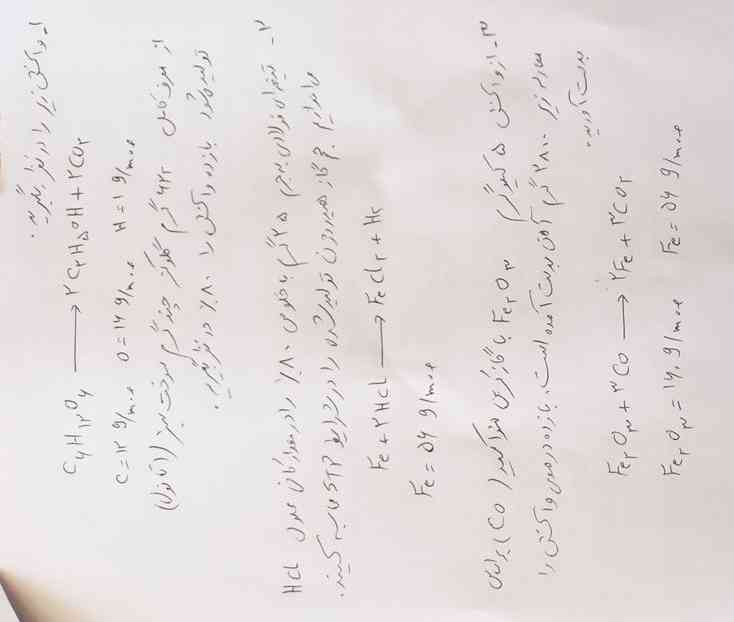 ۱- واکنش زیر را در نظر بگیرید.
C۶H۱۲O۶ → ۲C۲H۵OH + ۲CO۲
C=۱۲ g/mol O=۱۶ g/mol H=۱ g/mol
از مصرف کامل ۶۲۲ گرم گلوکز چند گرم سوخت سبز (اتانول)
تولید میشود بازده واکنش را ۸۰٪ در نظر بگیرید.
۲- تیغه‌ای فولادی به جرم ۲۵ گرم با خلوص ۸۰٪ را در مقدار کافی محلول HCl
می‌اندازیم حجم گاز هیدروژن تولید شده را در شرایط STP محاسبه کنید.
Fe + ۲HCl → FeCl۲ + H۲
Fe = ۵۶ g/mol
۳- از واکنش ۵ کیلوگرم Fe۲O۳ با گاز کربن منوکسید (CO)
۲۸۰۰ گرم آهن بدست آمده است. بازده درصدی واکنش را
بدست آورید.
Fe۲O۳ + ۳CO → ۲Fe + ۳CO۲
Fe۲O۳ = ۱۶۰ g/mol Fe = ۵۶ g/mol